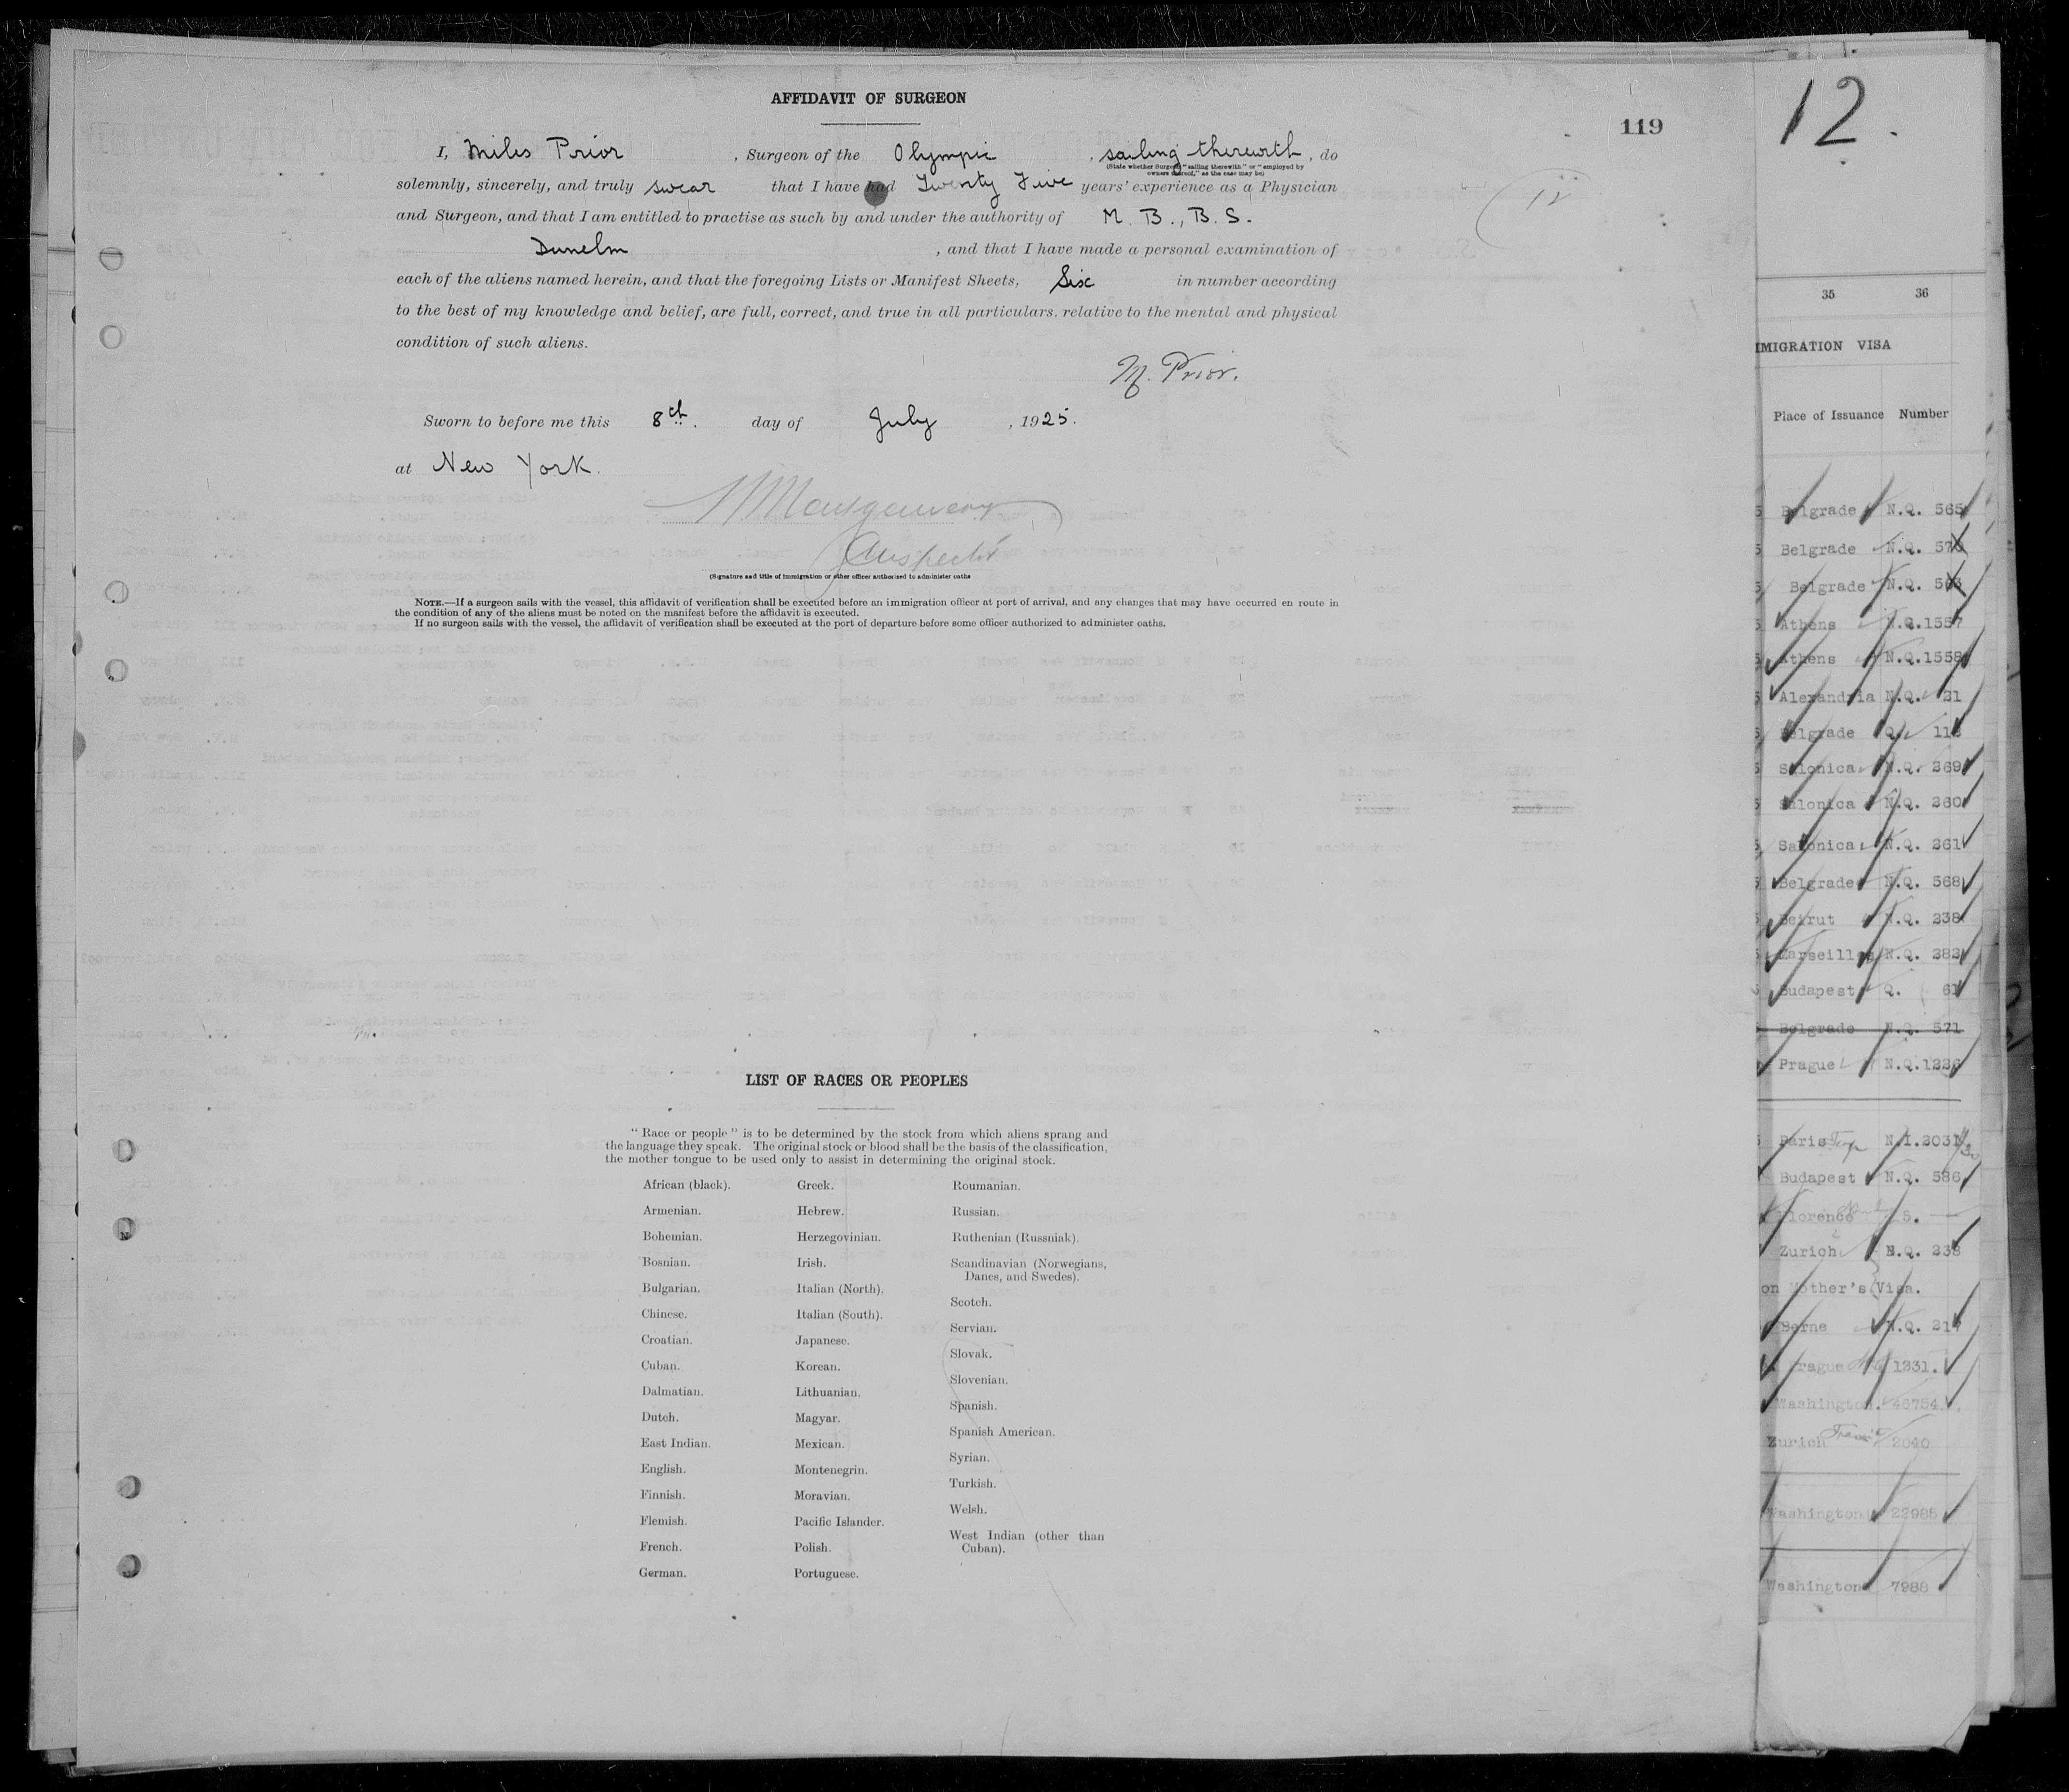 AFFIDAVIT OF SURGEON
119
12.
12
I, Miles Prior, Surgeon of the Olympic, sailing therewith, do
(State whether Surgeon "sailing therewith" or "employed by
owners thereof," as the case may be)
solemnly, sincerely, and truly swear that I have had Twenty Five years' experience as a Physician
and Surgeon, and that I am entitled to practise as such by and under the authority of M. B., B. S.
Dunelm, and that I have made a personal examination of
each of the aliens named herein, and that the foregoing Lists or Manifest Sheets, Six in number according
to the best of my knowledge and belief, are full, correct, and true in all particulars. relative to the mental and physical
condition of such aliens.
M. Prior.
Sworn to before me this 8th. day of July, 1925.
at New York.
(Signature and title of immigration or other officer authorized to administer oaths
NOTE.—If a surgeon sails with the vessel, this affidavit of verification shall be executed before an immigration officer at port of arrival, and any changes that may have occurred en route in
the condition of any of the aliens must be noted on the manifest before the affidavit is executed.
If no surgeon sails with the vessel, the affidavit of verification shall be executed at the port of departure before some officer authorized to administer oaths.
LIST OF RACES OR PEOPLES
"Race or people" is to be determined by the stock from which aliens sprang and
the language they speak. The original stock or blood shall be the basis of the classification,
the mother tongue to be used only to assist in determining the original stock.
African (black).
Armenian.
Bohemian.
Bosnian.
Bulgarian.
Chinese.
Croatian.
Cuban.
Dalmatian.
Dutch.
East Indian.
English.
Finnish.
Flemish.
French.
German.
Greek.
Hebrew.
Herzegovinian.
Irish.
Italian (North).
Italian (South).
Japanese.
Korean.
Lithuanian.
Magyar.
Mexican.
Montenegrin.
Moravian.
Pacific Islander.
Polish.
Portuguese.
Roumanian.
Russian.
Ruthenian (Russniak).
Scandinavian (Norwegians,
Danes, and Swedes).
Scotch.
Servian.
Slovak.
Slovenian.
Spanish.
Spanish American.
Syrian.
Turkish.
Welsh.
West Indian (other than
Cuban).
35 36
IMIGRATION VISA
Place of Issuance Number
Belgrade N.Q. 565
Belgrade N.Q. 570
Belgrade N.Q. 563
Athens N.Q.1557
Athens N.Q.1558
Alexandria N.Q. 21
Belgrade Q.
Salonica N.Q. 269
Salonica N.Q. 260
Salonica N.Q. 261
Belgrade N.Q. 568
Beirut N.Q. 238
Marseilles N.Q. 282
Budapest Q. 61
Belgrade N.Q. 571
Prague N.Q.1226
Paris N.I.2031
Budapest N.Q. 586
Florence S.
Zurich N.Q. 238
on Mother's Visa.
Berne N.Q. 217
Prague 1231.
Washington. 46754.
Zurich Transit 2040
Washington 22985
Washington 7988